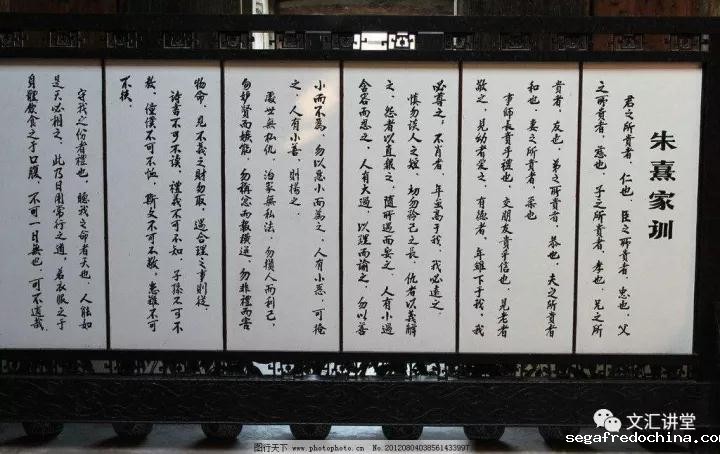 朱熹家训
君之所貴者，仁也。臣之所貴者，忠也。父
之所貴者，慈也。子之所貴者，孝也。兄之所
貴者，友也。弟之所貴者，恭也。夫之所貴者
和也。妻之所貴者，柔也
事師長貴乎禮也，交朋友貴乎信也。見老者
敬之，見幼者爱之。有德者，年雖下于我，我
必尊之。不肖者，年虽高于我，我必遠之。
慎勿谈人之短，切勿矜己之长。仇者以義解
之，怨者以直報之，隨所遇而安之。人有小過
含容而忍之。人有大過，以理而諭之。勿以善
小而不為，勿以恶小而為之。人有小恶，可掩
之，人有小善，則揚之。
處世無私仇，治家無私法。勿損人而利己，
勿妒賢而嫉能。勿稱忿而報横逆，勿非禮而害
物命。見不義之財勿取，遇合理之事則從。
诗書不可不读，禮義不可不知。子孫不可不
教，僮僕不可不恤。斯文不可不敬，患難不可
不扶。
守我之份者禮也，聽我之命者天也。人能如
是天必相之。此乃日用常行之道，若衣服之于
身體飲食之于口腹，不可一日無也，可不慎哉
文汇讲堂
segafredochina.com
图行天下 www.photophoto.cn No.20120804038561433997